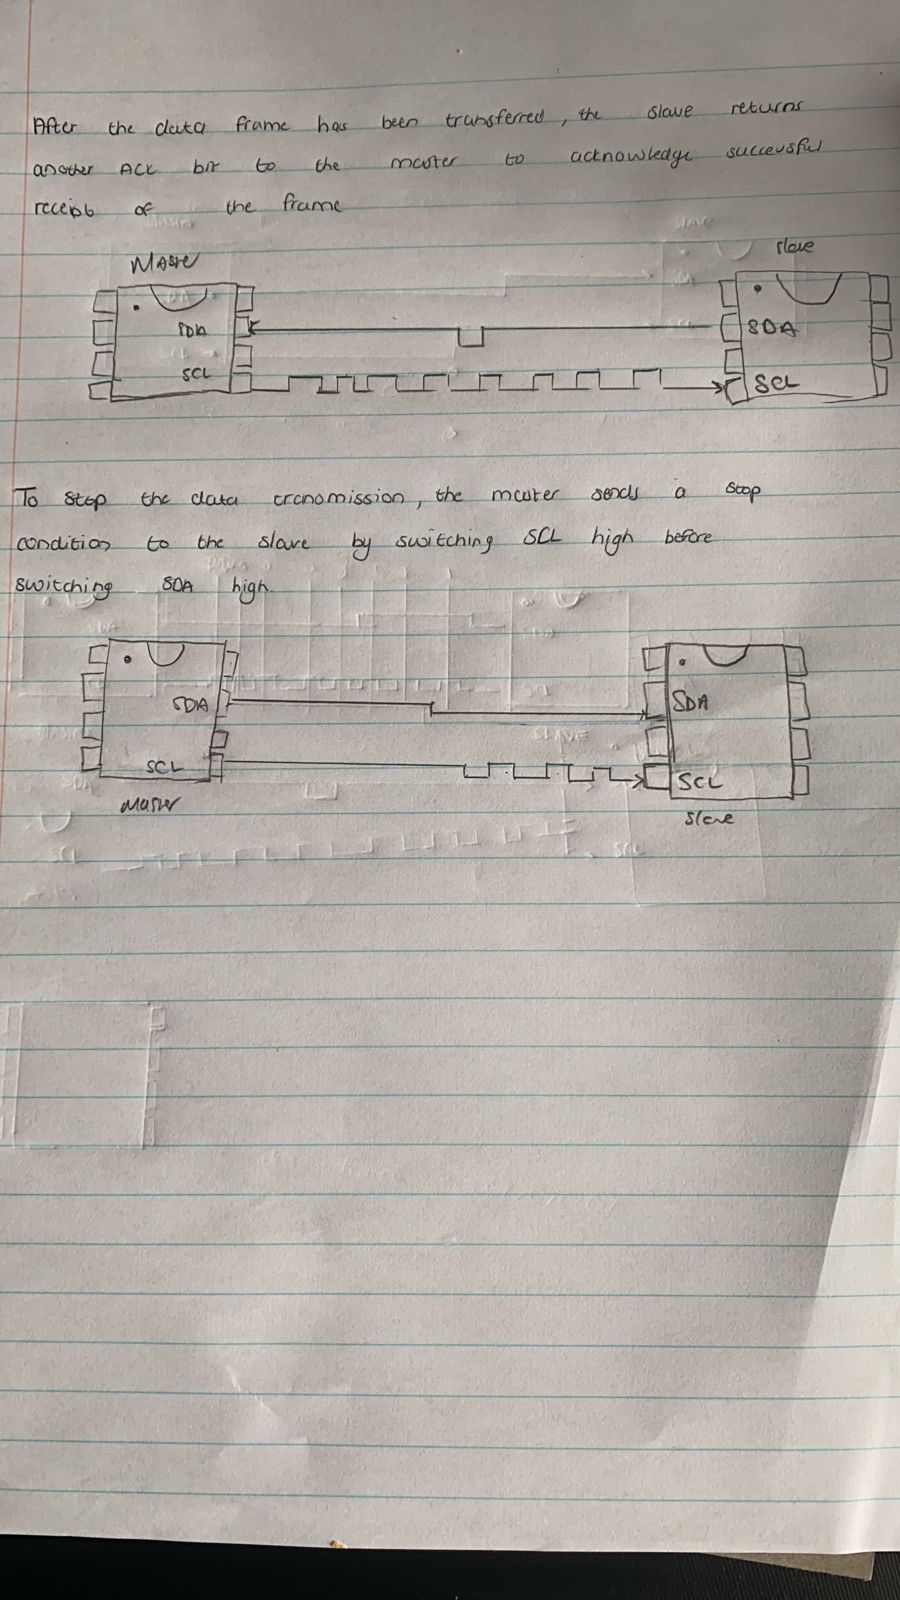 After the data frame has been transferred, the slave returns
another ACK bit to the master to acknowledge successful
receipt of the frame
Master
slave
SDA
SDA
SCL
SCL
To stop the data transmission, the master sends a stop
condition to the slave by switching SCL high before
switching SDA high.
SDA
SDA
SCL
SCL
Master
Slave